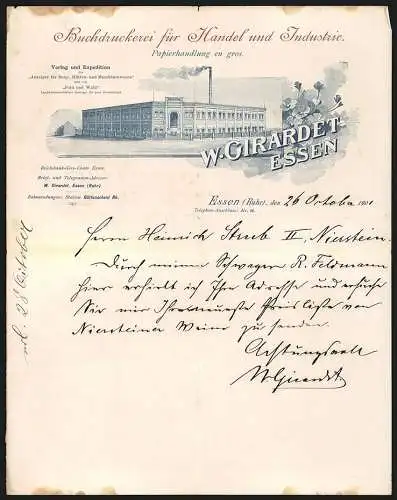 Buchdruckerei für Handel und Industrie.
Papierhandlung en gros.
Verlag und Expedition
des
„Anzeiger für Berg-, Hütten- und Maschinenwesen“
und von
„Feld und Wald“
W. GIRARDET
ESSEN
Reichsbank-Giro-Conto Essen.
Brief- und Telegramm-Adresse:
W. Girardet, Essen (Ruhr)
Bahnsendungen: Station Rüttenscheid Rh.
Essen (Ruhr), den 26 October 1901
Telephon-Anschluss: Nr.
Herrn Heinrich Strub II, Nierstein.
Durch meinen Schwager R. Feldmann
hier erhielt ich Ihre Adresse und ersuche
Sie mir Ihre neueste Preisliste von
Niersteiner Weine zu senden
Achtungsvoll
W Girardet
28 October